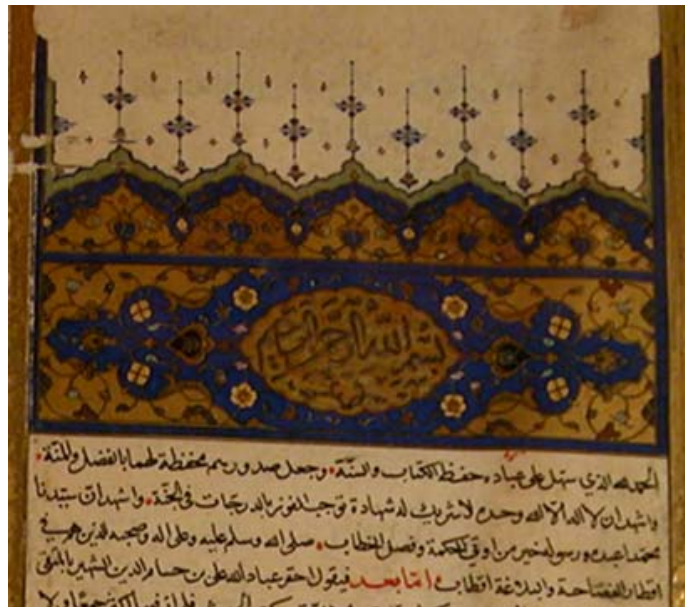 بسم الله الرحمن الرحيم
الحمد لله الذي سهل على عباده حفظ الكتاب والسنة وجعل صدورهم محفظة لهما بالفضل والمنة
واشهد ان لا اله الا الله وحده لا شريك له شهادة توجب الفوز بالدرجات في الجنة واشهد ان سيدنا
محمدا عبده ورسوله خير من اوتي الحكمة وفصل الخطاب صلى الله وسلم عليه وعلى اله وصحبه الذين هم في
اقطار الفصاحة والبلاغة اقطاب اما بعد فيقول احقر عباد الله علي بن حسام الدين الشهير بالمتقي